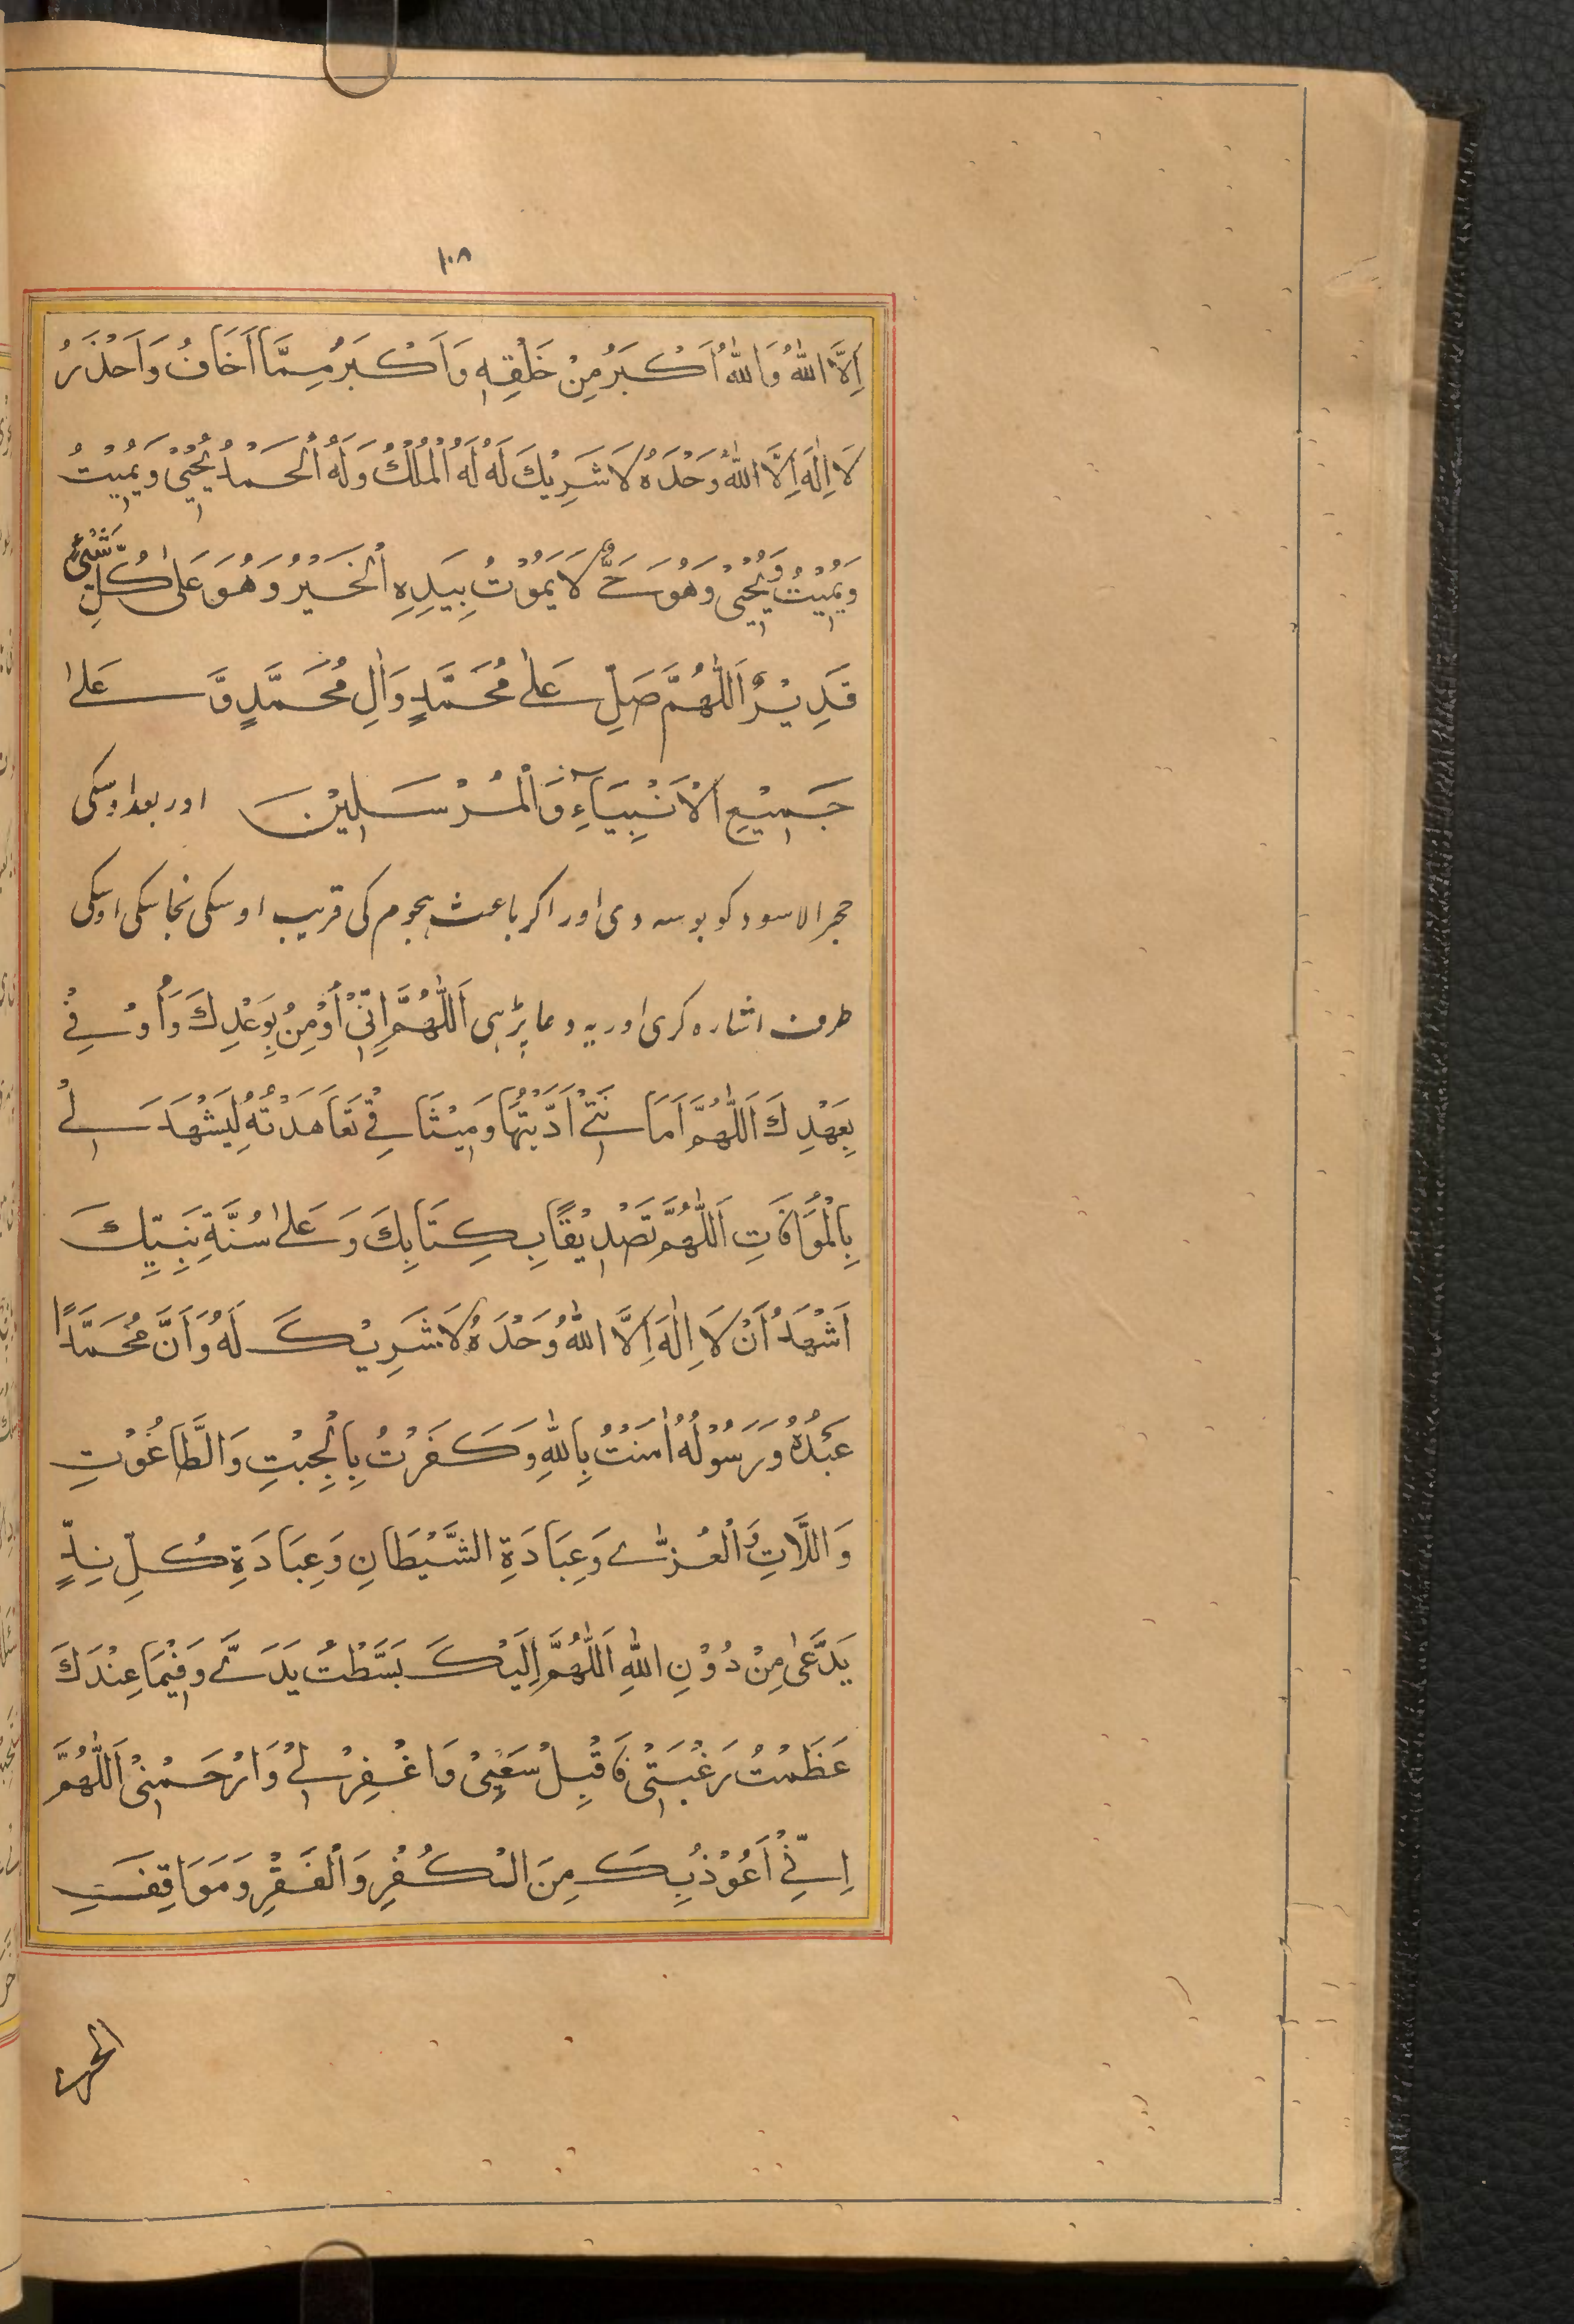 ۱۰۸
اِلَّا اللّٰهُ وَاللّٰهُ اَكْبَرُ مِنْ خَلْقِهٖ وَاَكْبَرُ مِمَّا اَخَافُ وَاَحْذَرُ
لَا اِلٰهَ اِلَّا اللّٰهُ وَحْدَهُ لَا شَرِيْكَ لَهُ لَهُ الْمُلْكُ وَلَهُ الْحَمْدُ يُحْيِيْ وَيُمِيْتُ
وَيُمِيْتُ وَيُحْيِيْ وَهُوَ حَيٌّ لَا يَمُوْتُ بِيَدِهِ الْخَيْرُ وَهُوَ عَلٰى كُلِّ شَيْءٍ
قَدِيْرٌ اَللّٰهُمَّ صَلِّ عَلٰى مُحَمَّدٍ وَاٰلِ مُحَمَّدٍ وَّعَلٰى
جَمِيْعِ الْاَنْبِيَآءِ وَالْمُرْسَلِيْنَ اور بعد اوسکی
حجر الاسود کو بوسہ دی اور اکر باعث ہجوم کی قریب اوسکی نجاسکی اوسکی
طرف اشارہ کری اور یہ دعا پڑہی اَللّٰهُمَّ اِنِّيْ اُؤْمِنُ بِوَعْدِكَ وَاُوْفِيْ
بِعَهْدِكَ اَللّٰهُمَّ اَمَانَتِيْ اَدَّيْتُهَا وَمِيْثَاقِيْ تَعَاهَدْتُهُ لِيَشْهَدَ لِيْ
بِالْمُوَافَاتِ اَللّٰهُمَّ تَصْدِيْقًا بِكِتَابِكَ وَعَلٰى سُنَّةِ نَبِيِّكَ
اَشْهَدُ اَنْ لَا اِلٰهَ اِلَّا اللّٰهُ وَحْدَهُ لَا شَرِيْكَ لَهُ وَاَنَّ مُحَمَّدًا
عَبْدُهُ وَرَسُوْلُهُ اٰمَنْتُ بِاللّٰهِ وَكَفَرْتُ بِالْجِبْتِ وَالطَّاغُوْتِ
وَاللَّاتِ وَالْعُزّٰى وَعِبَادَةِ الشَّيْطَانِ وَعِبَادَةِ كُلِّ نِدٍّ
يَدَّعٰى مِنْ دُوْنِ اللّٰهِ اَللّٰهُمَّ اِلَيْكَ بَسَّطْتُ يَدَيَّ وَفِيْمَا عِنْدَكَ
عَظَمْتُ رَغْبَتِيْ فَاقْبِلْ سَعْيِيْ وَاغْفِرْ لِيْ وَارْحَمْنِيْ اَللّٰهُمَّ
اِنِّيْ اَعُوْذُ بِكَ مِنَ الْكُفْرِ وَالْفَقْرِ وَمَوَاقِفِ